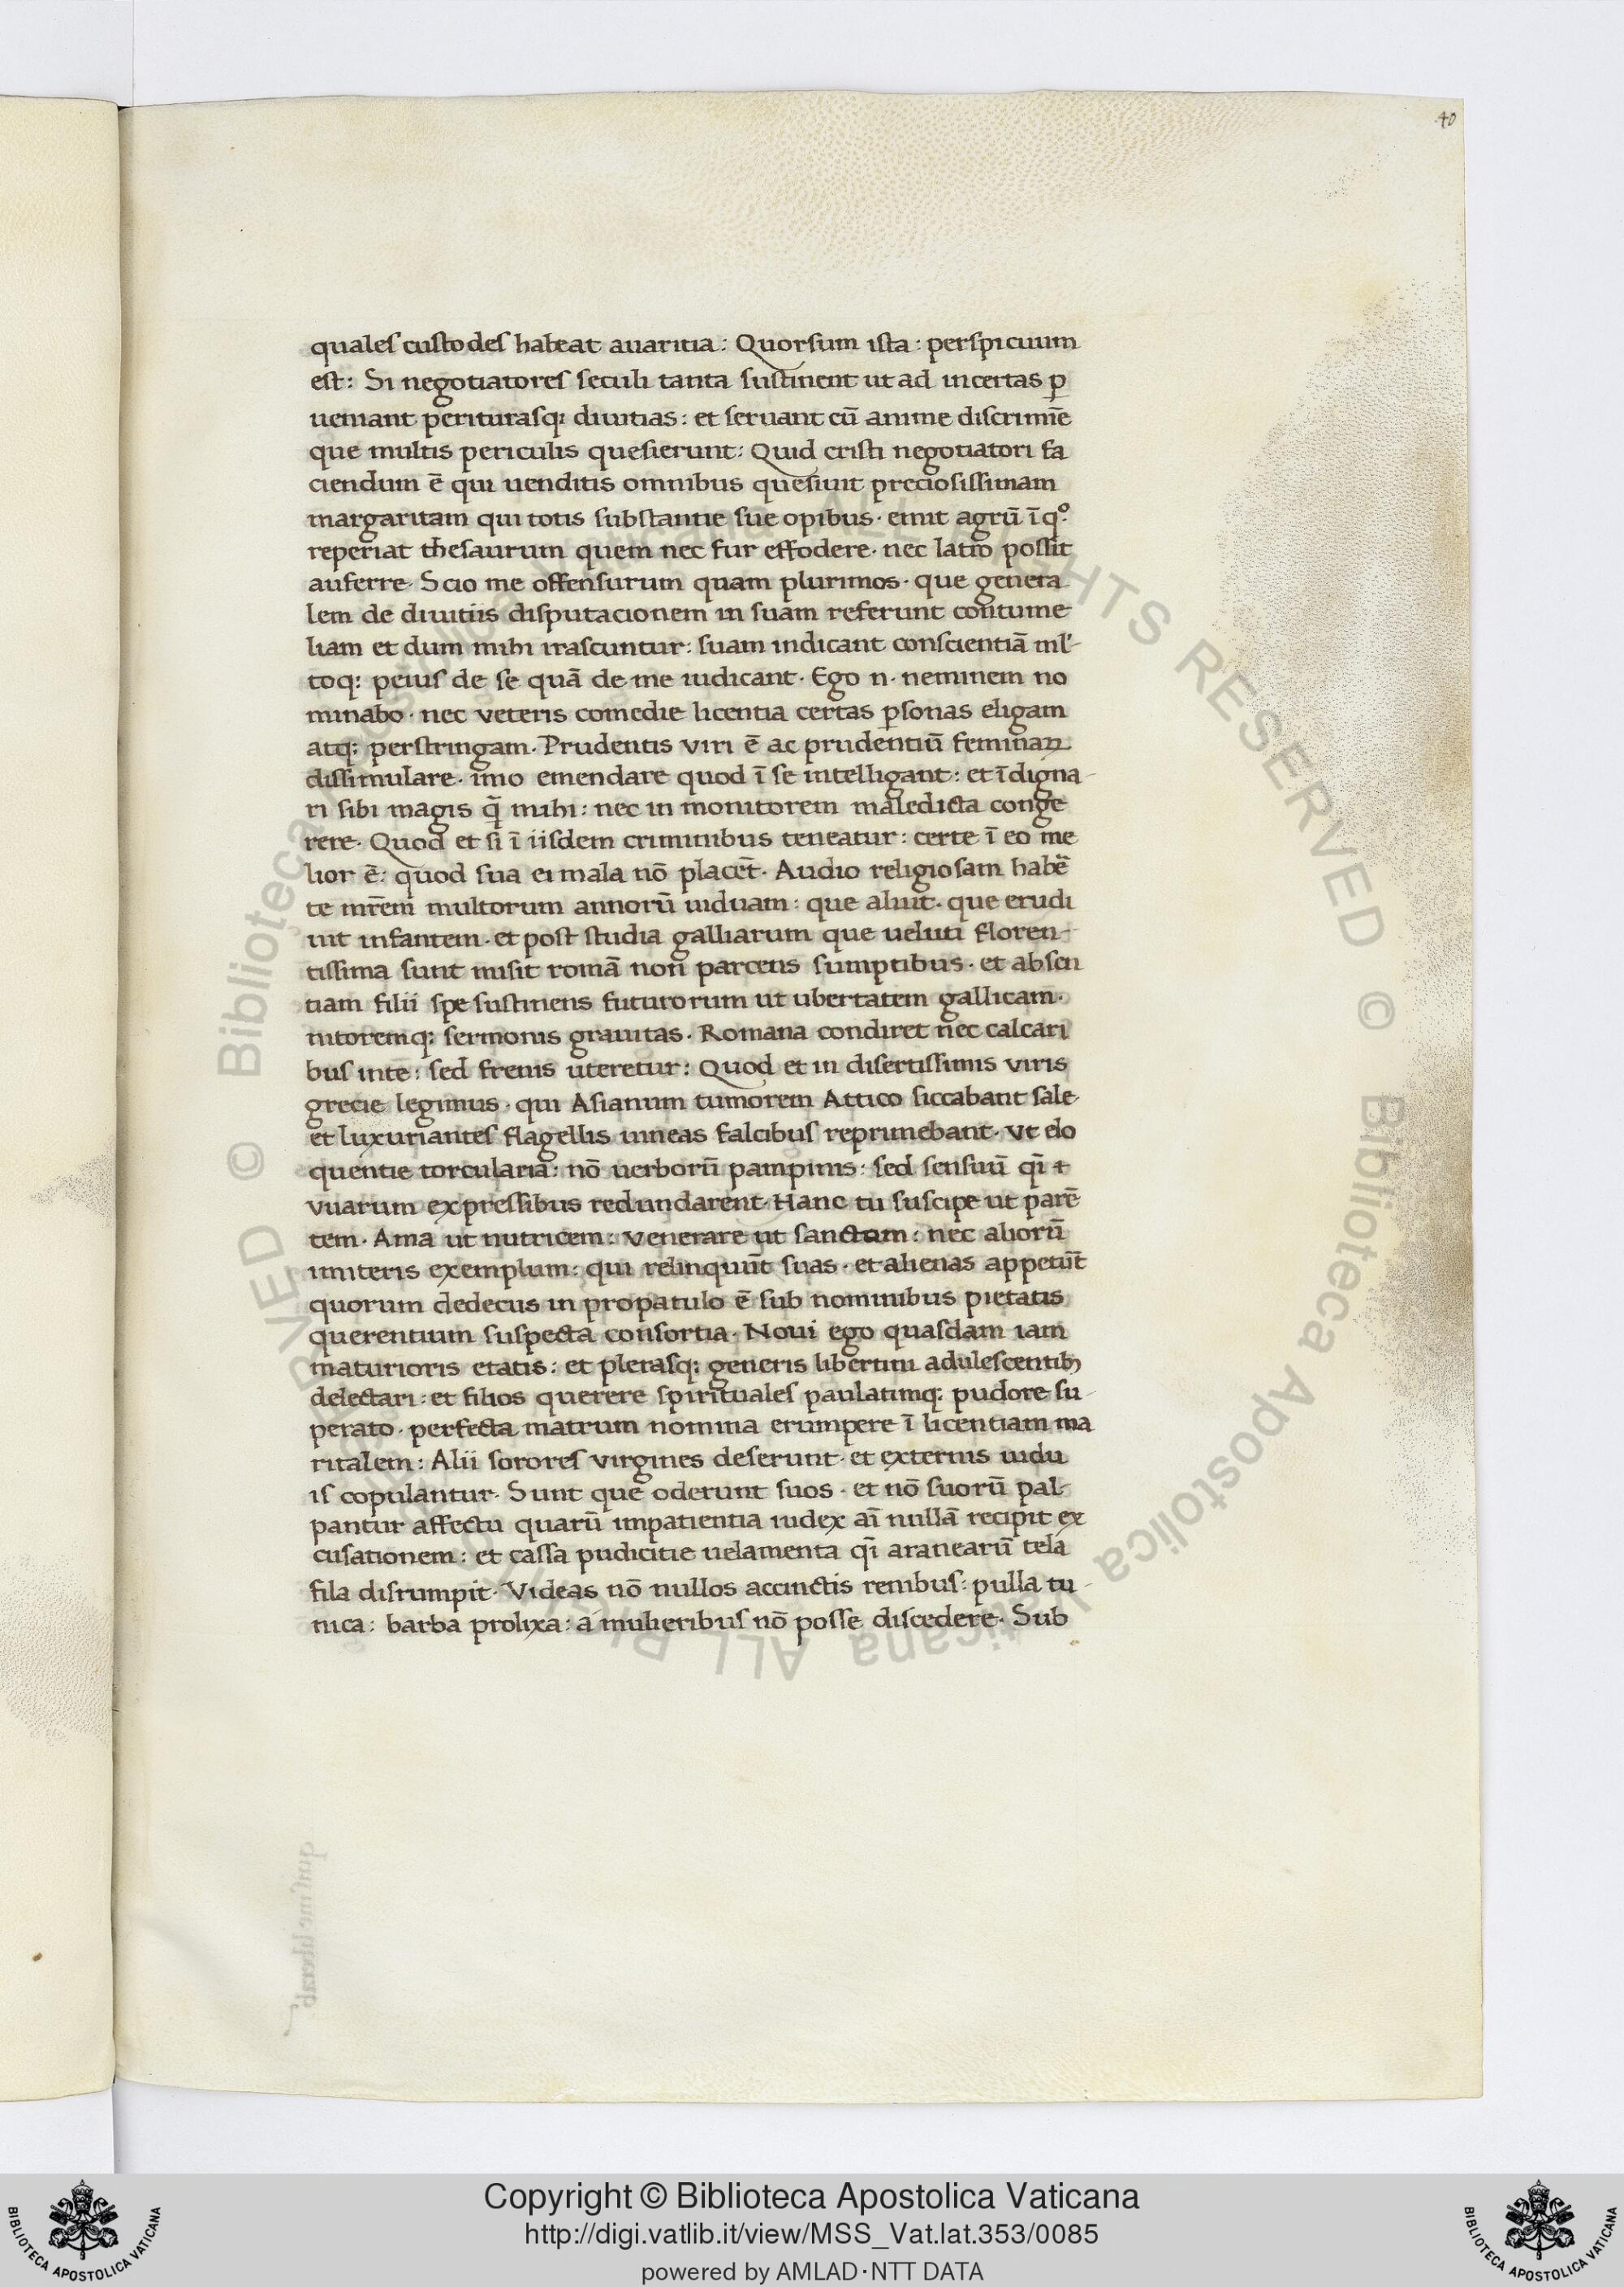 40
quales custodes habeat auaritia: Quorsum ista: perspicuum
est: Si negotiatores seculi tanta sustinent ut ad incertas ꝑ
ueniant periturasq; diuitias: et seruant cū anime discrimīe
que multis periculis quesierunt: Quid cristi negotiatori fa
ciendum ē qui uenditis omnibus quesiuit preciosissimam
margaritam qui totis substantie sue opibus· emit agrū ī q°.
reperiat thesaurum quem nec fur effodere· nec latro possit
auferre· Scio me offensurum quam plurimos· que genera
lem de diuitiis disputacionem in suam referunt contume
liam et dum mihi irascuntur: suam indicant conscientiā ml'-
toq; peius de se quā de me iudicant· Ego n· neminem no
minabo· nec veteris comedie licentia certas ꝑsonas eligam
atq; perstringam· Prudentis viri ē ac prudentiū feminaꝝ
dissimulare· imo emendare quod ī se intelligant: et īdigna-
ri sibi magis q̄ mihi: nec in monitorem maledicta conge
rere· Quod et si ī iisdem criminibus teneatur: certe ī eo me
lior ē: quod sua ei mala nō placēt· Audio religiosam habē
te mr̄em multorum annorū uiduam: que aluit· que erudi
uit infantem· et post studia galliarum que ueluti floren-
tissima sunt misit romā non parcens sumptibus· et absen
tiam filii spe sustinens futurorum ut ubertatem gallicam·
nitoremq; sermonis grauitas· Romana condiret nec calcari
bus inte: sed frenis uteretur: Quod et in disertissimis viris
grecie legimus· qui Asianum tumorem Attico siccabant sale·
et luxuriantes flagellis uineas falcibus reprimebant· Vt elo
quentie torcularia: nō uerborū pampinis: sed sensuū qī ⁊
vuarum expressibus redundarent· Hanc tu suscipe ut parē
tem· Ama ut nutricem: venerare ut sanctam: nec aliorū
imiteris exemplum: qui relinquūt suas· et alienas appetūt
quorum dedecus in propatulo ē sub nominibus pietatis
querentium suspecta consortia· Noui ego quasdam iam
maturioris etatis: et plerasq; generis libertini adulescentibꝫ
delectari: et filios querere spirituales paulatimq; pudore su-
perato· perfecta matrum nomina erumpere ī licentiam ma
ritalem: Alii sorores virgines deserunt· et externis uidu
is copulantur· Sunt que oderunt suos· et nō suorū pal-
pantur affectu quarū impatientia iudex aī nullā recipit ex
cusationem: et cassa pudicitie uelamenta qī aranearū tela
fila disrumpit· Videas nō nullos accinctis renibus: pulla tu-
nica: barba prolixa: a mulieribus nō posse discedere· Sub
© Biblioteca Apostolica Vaticana ALL RIGHTS RESERVED © Biblioteca Apostolica Vaticana ALL RIGHTS RESERVED
BIBLIOTECA APOSTOLICA VATICANA
Copyright © Biblioteca Apostolica Vaticana
http://digi.vatlib.it/view/MSS_Vat.lat.353/0085
powered by AMLAD·NTT DATA
BIBLIOTECA APOSTOLICA VATICANA